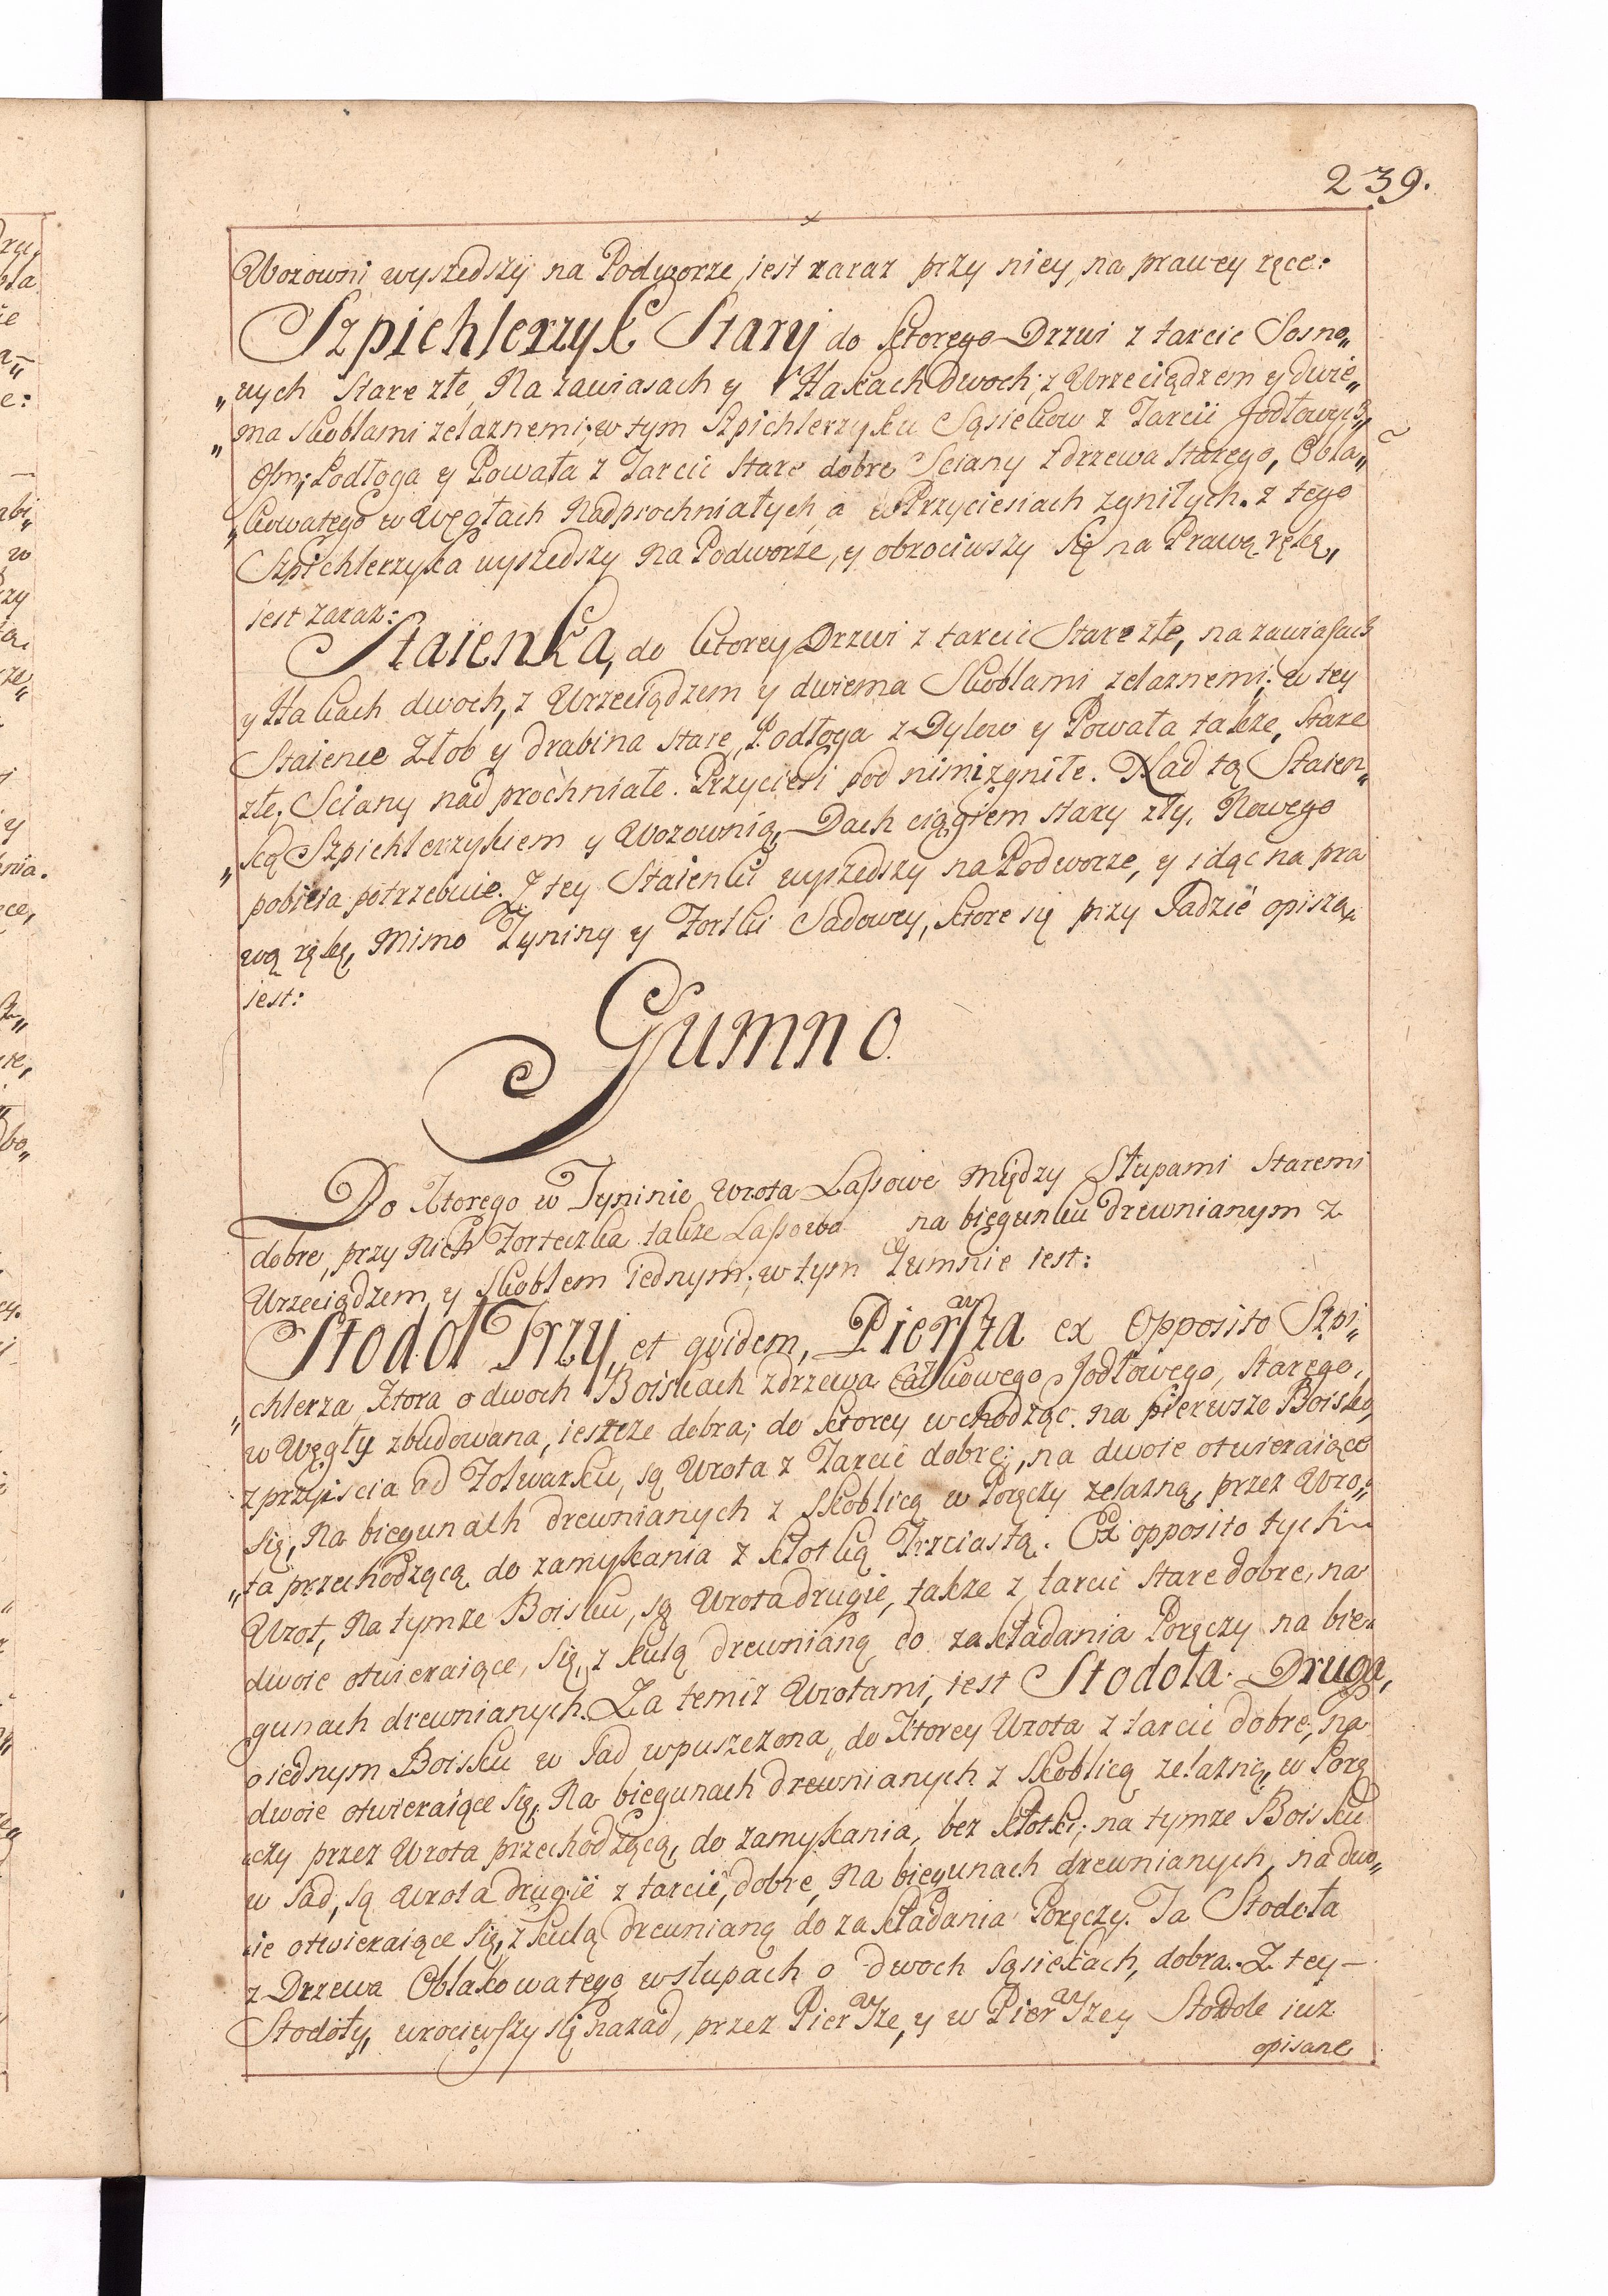 239.
Wozowni wyszedszy na Podworze, iest zaraz przy niey, na prawey ręce:
Szpichlerzyk Stary do ktorego Drzwi z tarcic Sosno„
„wych Stare złe, Na zawiasach y Hakach dwoch, z Wrzeciądzem y dwie„
„ma skoblami zelaznemi; w tym Szpichlerzyku Sąsiekow z Tarcic Jodłowych
Osm; Podłoga y Powała z Tarcic Stare dobre Sciany z drzewa Starego, Obla„
„kowatego w Węgłach Nadprochniałych, a w Przyciesiach zgniłych. z tego
Szpichlerzyka wyszedszy Na Podworze, y obrociwszy się na Prawą rękę,
iest zaraz:
Staienka, do ktorey Drzwi z tarcic Stare złe, na zawiasach
y Hakach dwoch, z Wrzeciądzem y dwiema Skoblami zelaznemi; w tey
Staience Złob y drabina stare, Podłoga z Dylow y Powała także, Stare
złe, Sciany nad prochniałe. Przyciesi pod nimi zgniłe. Nad tą Staien„
„ką Szpichlerzykiem y Wozownią, Dach ciągiem stary zły, Nowego
pobicia potrzebuie. Z tey Staienki wyszedszy na Podworze, y idąc na pra
wą rękę, Mimo Tyniny y Fortki Sadowey, ktore się przy Sadzie opiszą,
iest:
Gumno.
Do Ktorego w Tyninie wrota Lassowe między Słupami staremi
dobre, przy Nich Forteczka także Lassowa na biegunku drewnianym z
Wrzeciądzem y skoblem iednym; w tym Gumnie iest:
Stodoł Trzy, et quidem, Pierwsza ex Opposito Szpi„
„chlerza Ktora o dwoch Boiskach z drzewa Jodłowego, starego,
w Węgły zbudowana, ieszcze dobra; do ktorey wchodząc na pierwsze Boisko,
z przyiscia od Folwarku, są Wrota z Tarcic dobre, na dwoie otwieraiące
się, Na biegunach drewnianych z skoblicą w Poręczy zelazną, przez Wro„
„ta przechodzącą do zamykania z kłotką Trzciastą. Ex opposito tych
Wrot, Na tymze Boisku, są Wrota drugie, także z tarcic stare dobre, na
dwoie otwieraiące, się, z kulą drewnianą do zakładania Poręczy na bie„
gunach drewnianych. Za temiz Wrotami, iest Stodoła Druga,
o iednym Boisku w Sad wpuszczona, do Ktorey Wrota z tarcic dobre, na
dwoie otwieraiące się, Na biegunach drewnianych z skoblicą zelazną, w Porę
„czy przez Wrota przechodzącą, do zamykania, bez kłotki; na tymze Boisku
w Sad, są Wrota drugie z tarcic, dobre, Na biegunach drewnianych, na dwo„
„ie otwieraiące się, z kulą drewnianą do zakładania Poręczy. Ta Stodoła
z Drzewa Oblakowatego w słupach o dwoch sąsiekach, dobra. Z tey
Stodoły, wrociwszy się nazad, przez Pierwsze, y w Pierwszey Stodole iuz
opisane